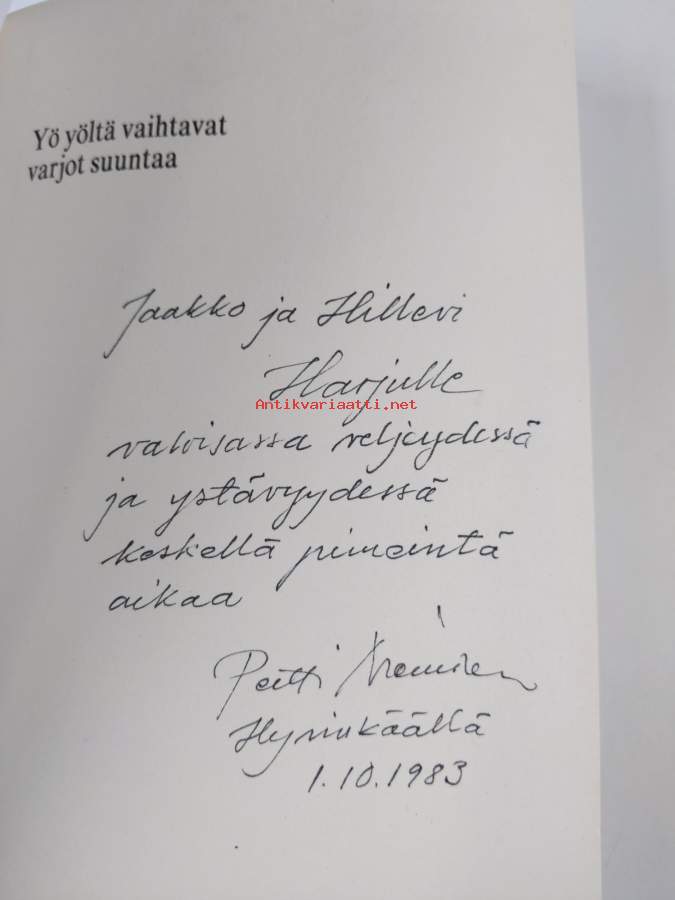 Yö yöltä vaihtavat
varjot suuntaa
Jaakko ja Hillevi
Harjulle
Antikvariaatti.net
valoisassa veljeydessä
ja ystävyydessä
keskellä pimeintä
aikaa
Pertti Nieminen
Hyvinkäällä
1.10.1983